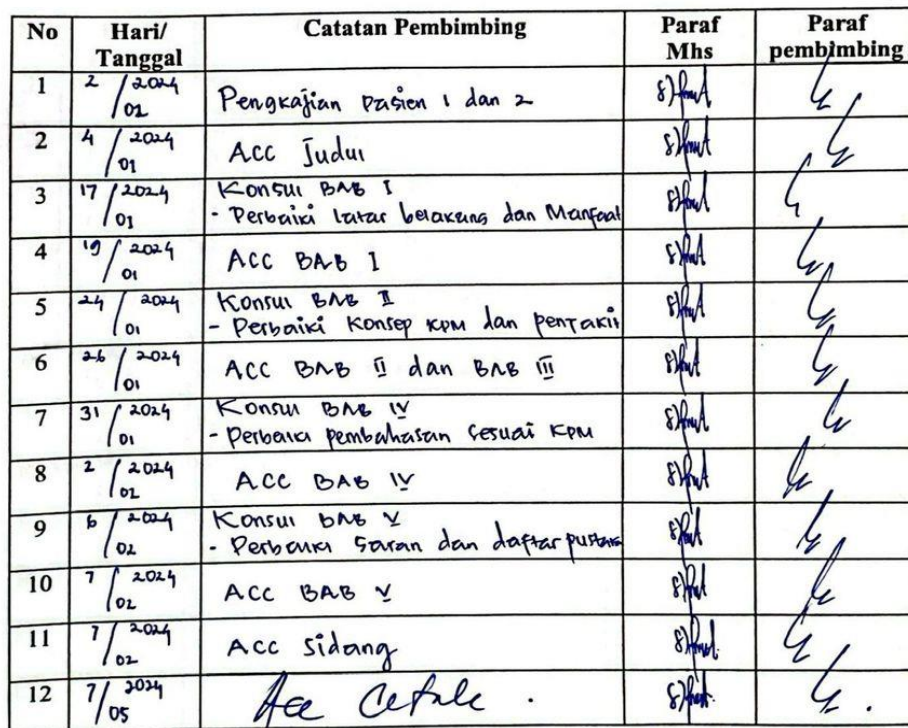 No Hari/ Tanggal Catatan Pembimbing Paraf Mhs Paraf pembimbing
1 2/01 2024 Pengkajian Pasien 1 dan 2
2 4/01 2024 ACC Judul
3 17/01 2024 Konsul BAB I
- Perbaiki latar belakang dan Manfaat
4 19/01 2024 ACC BAB I
5 24/01 2024 Konsul BAB II
- Perbaiki Konsep KPM dan penyakit
6 26/01 2024 ACC BAB II dan BAB III
7 31/01 2024 Konsul BAB IV
- Perbaiki pembahasan sesuai KPM
8 2/02 2024 ACC BAB IV
9 6/02 2024 Konsul BAB V
- Perbaiki Saran dan daftar pustaka
10 7/02 2024 ACC BAB V
11 7/02 2024 ACC Sidang
12 7/05 2024 Acc Cetak.